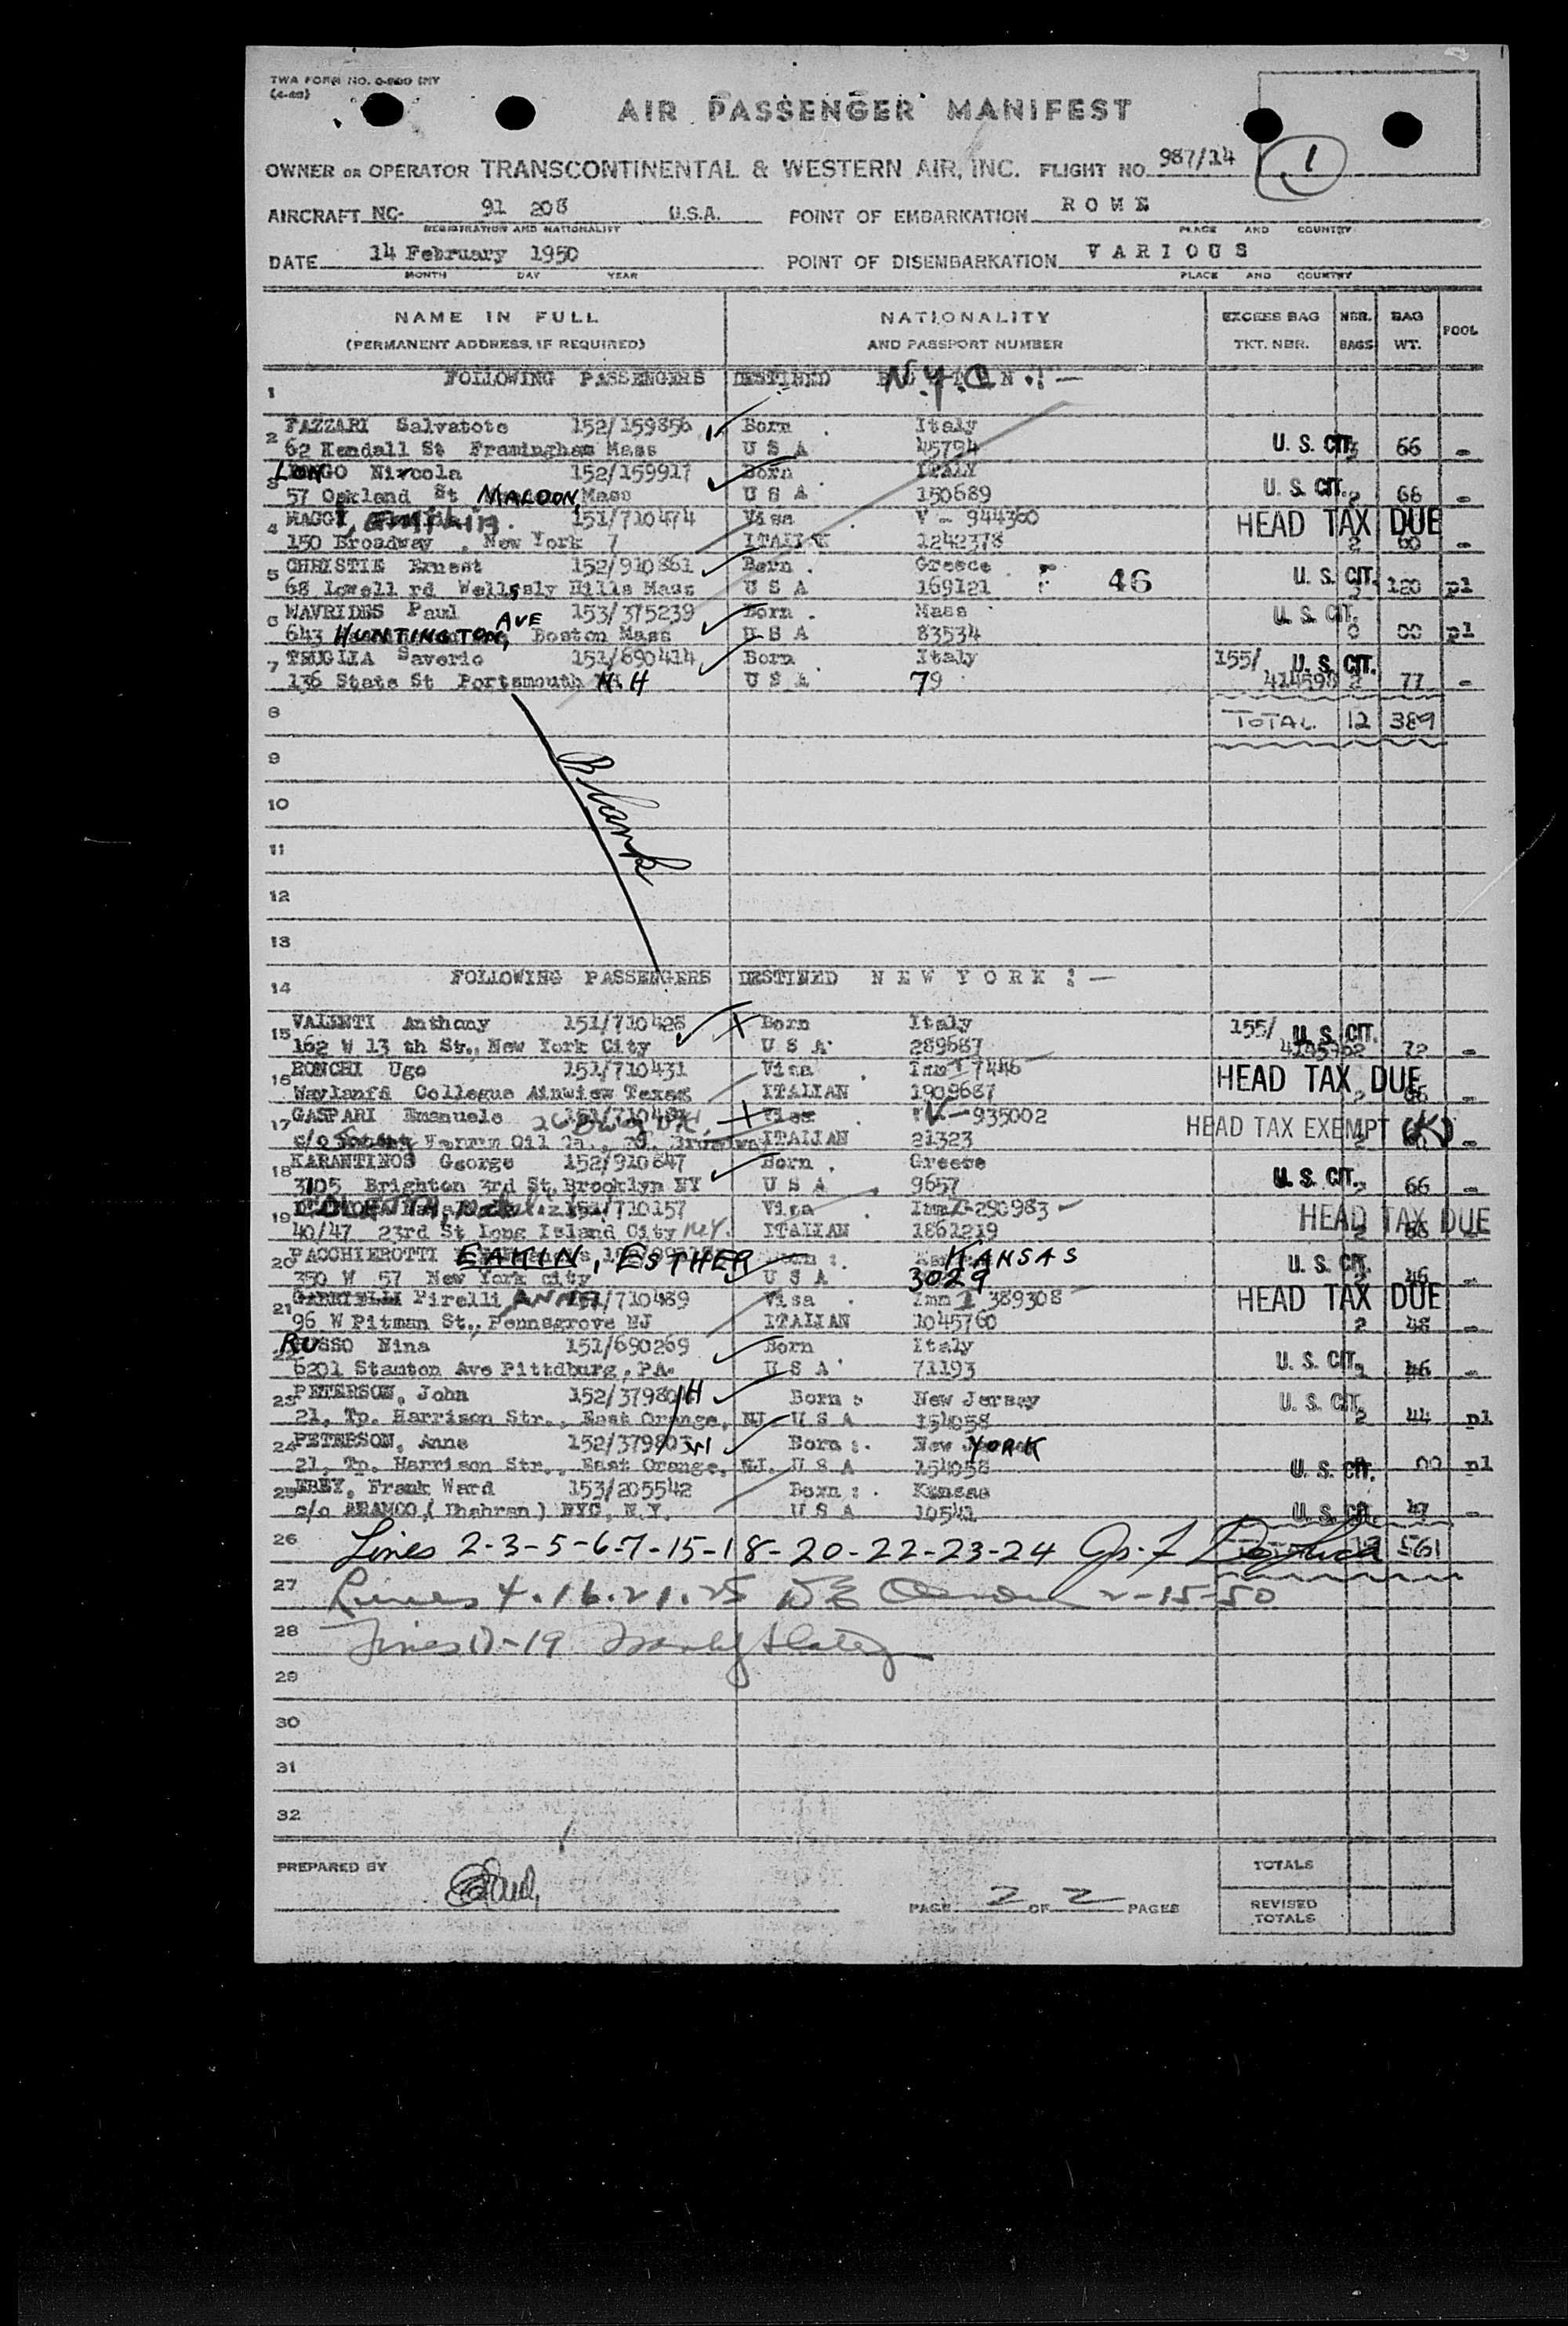 TWA FORM NO.
AIR PASSENGER MANIFEST
OWNER OR OPERATOR TRANSCONTINENTAL & WESTERN AIR, INC. FLIGHT NO. 987/14 1
AIRCRAFT NC- 91 208 U.S.A. POINT OF EMBARKATION ROME
REGISTRATION AND NATIONALITY PLACE AND COUNTRY
DATE 14 February 1950 POINT OF DISEMBARKATION VARIOUS
MONTH DAY YEAR PLACE AND COUNTRY
NAME IN FULL NATIONALITY EXCESS BAG NBR. BAG POOL
(PERMANENT ADDRESS, IF REQUIRED) AND PASSPORT NUMBER TKT. NBR. BAGS WT.
1 FOLLOWING PASSENGERS DESTINED N.Y.C. :-
2 FAZZARI Salvatote 152/159856 Born Italy
62 Kendall St Framingham Mass U S A 45794 U. S. CIT. 66 -
3 LONGO Nircola 152/159917 Born ITALY
57 Oakland St MALDON, Mass U S A 150689 U. S. CIT. 2 66 -
4 MAGGI 151/710474 Visa V - 944360 HEAD TAX DUE
150 Broadway , New York 7 ITALIAN 1242378 2 60 -
5 CHRISTIE Ernest 152/910861 Born . Greece
68 Lowell rd Wellesly Hills Mass U S A 169121 46 U. S. CIT. 120 pl
6 MAVRIDES Paul 153/375239 Born . Mass U. S. CIT.
643 HUNTINGTON, AVE Boston Mass U S A 83534 0 00 pl
7 TRUGLIA Saverio 151/690414 Born Italy 155/ U. S. CIT.
136 State St Portsmouth N.H U S A 79 414598 2 77 -
8 TOTAL 12 389
9
Blank
10
11
12
13
14 FOLLOWING PASSENGERS DESTINED NEW YORK :-
15 VALENTI Anthony 151/710428 Born Italy 155/ U. S. CIT.
162 W 13 th St., New York City U S A 289687 72 -
16 RONCHI Ugo 151/710431 Visa Imm I 7446 HEAD TAX DUE
Waylanfd Collegue Ainwiew Texas ITALIAN 1909687
17 GASPARI Emanuele Visa V - 935002 HEAD TAX EXEMPT (K)
c/o Vacuum Oil Co., ITALIAN 21323 -
18 KARANTINOS George 152/910847 Born . Greece
3105 Brighton 3rd St. Brooklyn NY U S A 9657 U. S. CIT. 2 66 -
19 151/710157 Visa Imm I-290983 HEAD TAX DUE
40/47 23rd St Long Island City N.Y. ITALIAN 1861219
20 PACCHIEROTTI EAKIN, ESTHER KANSAS
350 W 57 New York city U S A 3029 U. S. CIT. 46 -
21 GABRIELLI Pirelli ANNA 151/710489 Visa Imm I 389308 HEAD TAX DUE
96 W Pitman St., Pennsgrove NJ ITALIAN 1045760 2 48 -
22 RUSSO Nina 151/690269 Born Italy
6201 Stanton Ave Pittdburg, PA. U S A 71193 U. S. CIT. 46 -
23 PETERSON, John H Born : New Jersey U. S. CIT.
21, Tp. Harrison Str., East Orange, NJ U S A 154058 2 44 pl
24 PETERSON, Anne 152/379803 W Born : New YORK
21, Tp. Harrison Str., East Orange, NJ. U S A 154058 U. S. CIT. 00 pl
25 EBEY, Frank Ward 153/205542 Born : Kansas
c/o ARAMCO, ( Dhahran ) NYC, N.Y. U S A 10541 U. S. CIT. 47 -
26 Lines 2-3-5-6-7-15-18-20-22-23-24 561
27 Lines 4.16.21.25 2-15-50
28 Lines 17-19
29
30
31
32
PREPARED BY TOTALS
PAGE 2 OF 2 PAGES REVISED TOTALS